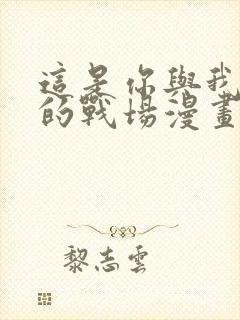 這是你與我
的戰場漫畫
黎志雲